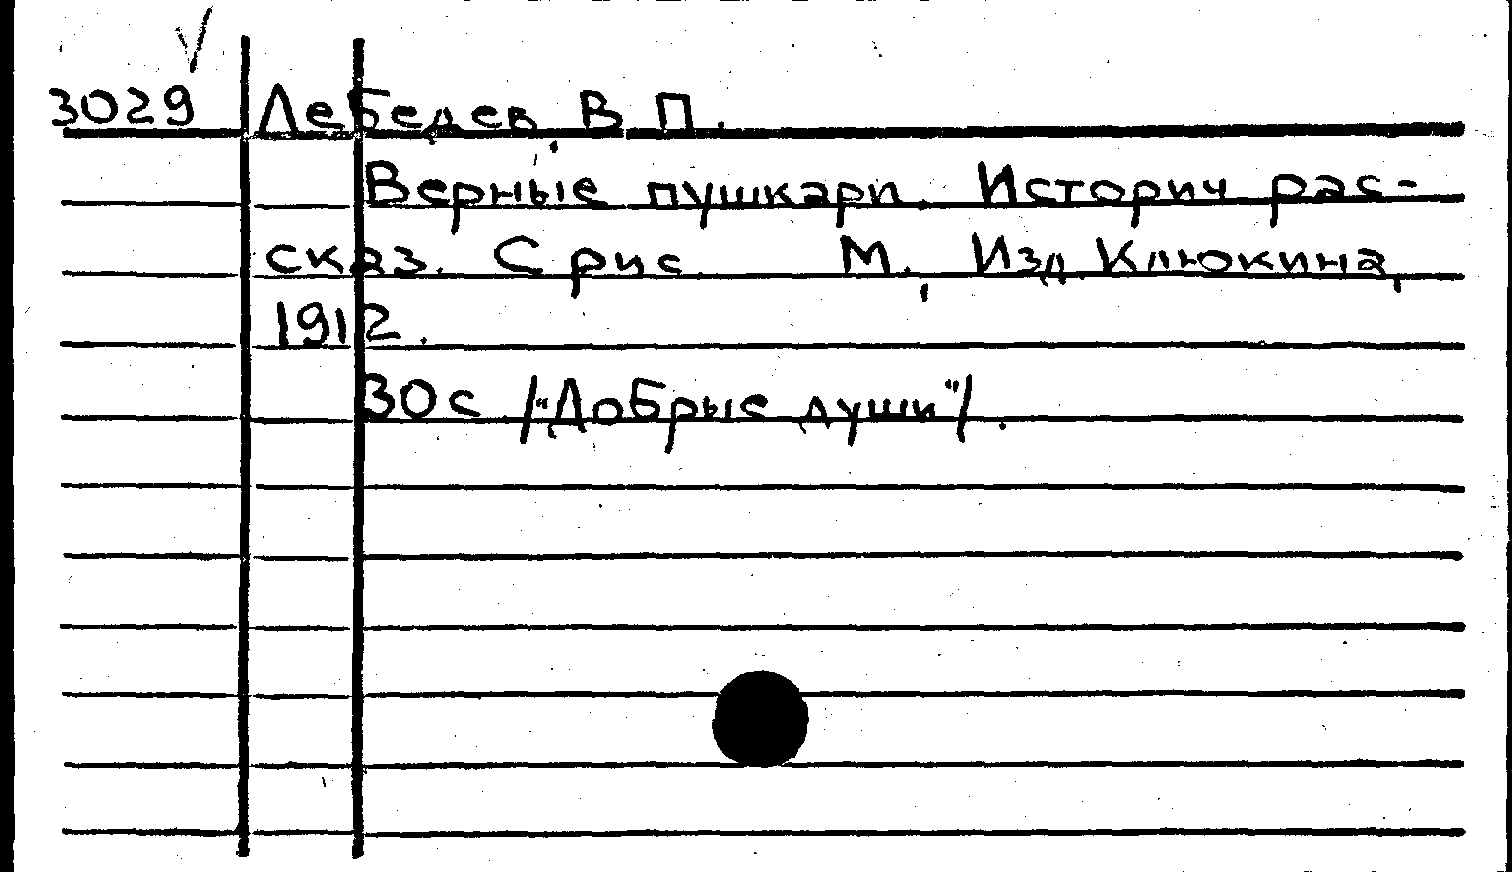 3029 Лебедев, В. П.
Верные пушкари. Историч рас-
сказ. С рис. М., Изд. Клюкина,
1912.
30 с /"Добрые души"/.